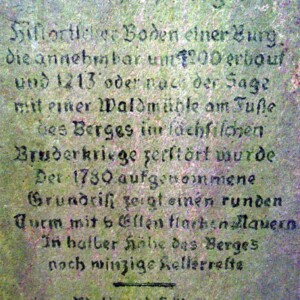 Historischer Boden einer Burg,
die annehmbar um 1200 erbaut
und 1213 oder nach der Sage
mit einer Waldmühle am Fuße
des Berges im sächsischen
Bruderkriege zerstört wurde.
Der 1780 aufgenommene
Grundriß zeigt einen runden
Turm mit 6 Ellen starken Mauern
In halber Höhe des Berges
noch winzige Kellerreste